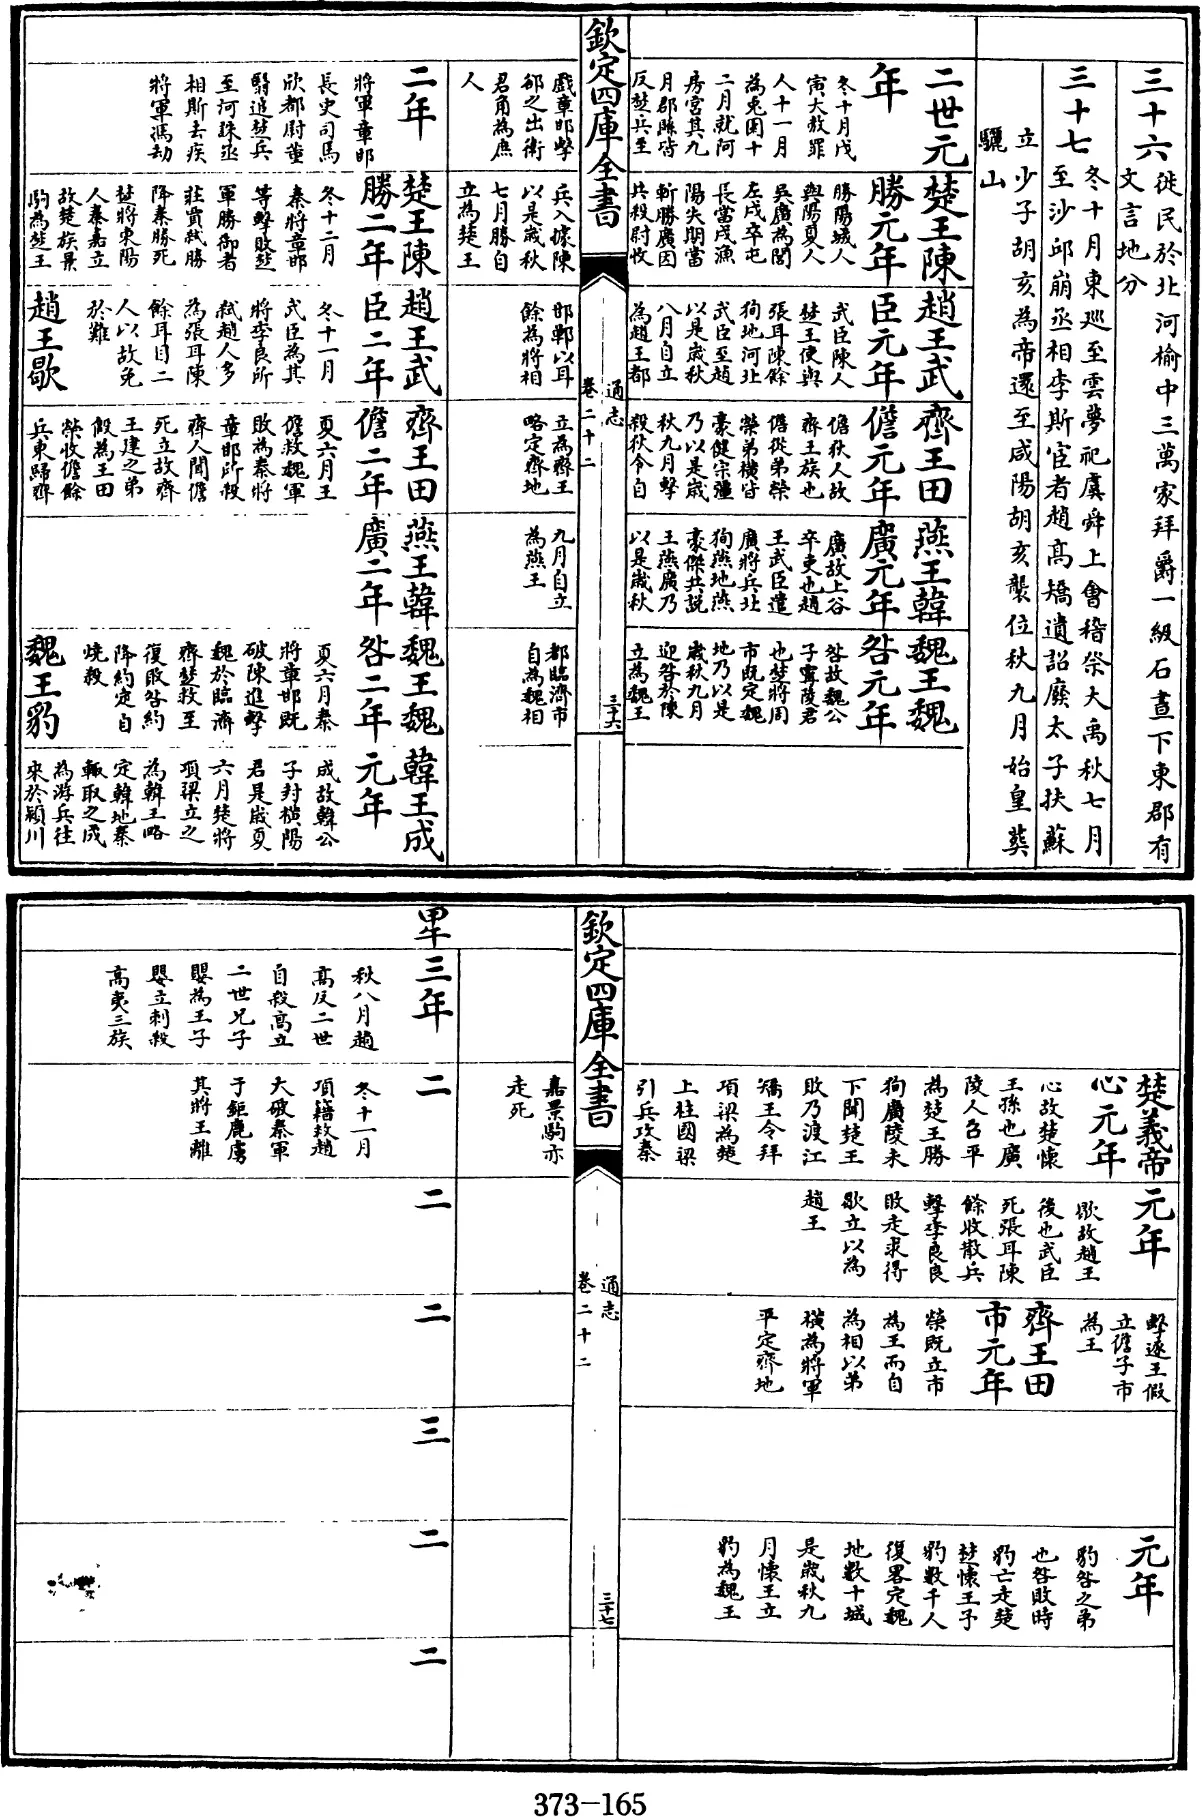 三十六
徙民於北河榆中三萬家拜爵一級石晝下東郡有
文言地分
三十七
冬十月東巡至雲夢祀虞舜上會稽祭大禹秋七月
至沙邱崩丞相李斯宦者趙高矯遺詔廢太子扶蘇
立少子胡亥為帝還至咸陽胡亥襲位秋九月始皇葬
驪山
二世元
年
冬十月戊
寅大赦罪
人十一月
為兎園十
二月就阿
房宮其九
月郡縣皆
反楚兵至
戲章邯擊
郤之出衛
君角為庶
人
楚王陳
勝元年
勝陽城人
與陽夏人
吳廣為閭
左戍卒屯
長當戍漁
陽失期當
斬勝廣因
共殺尉收
兵入據陳
以是歲秋
七月勝自
立為楚王
趙王武
臣元年
武臣陳人
楚王使與
張耳陳餘
狥地河北
武臣至趙
以是歲秋
八月自立
為趙王都
邯鄲以耳
餘為將相
齊王田
儋元年
儋狄人故
齊王族也
儋從弟榮
榮弟橫皆
豪健宗彊
乃以是歲
秋九月擊
殺狄令自
立為齊王
略定齊地
燕王韓
廣元年
廣故上谷
卒吏也趙
王武臣遣
廣將兵北
狥燕地燕
豪傑共說
王燕廣乃
以是歲秋
九月自立
為燕王
魏王魏
咎元年
咎故魏公
子甯陵君
也楚將周
市既定魏
地乃以是
歲秋九月
迎咎於陳
立為魏王
都臨濟市
自為魏相
欽定四庫全書
通志
卷二十二
三十六
二年
將軍章邯
長史司馬
欣都尉董
翳追楚兵
至河誅丞
相斯去疾
將軍馮劫
楚王陳
勝二年
冬十二月
秦將章邯
等擊敗楚
軍勝御者
莊賈弒勝
降秦勝死
楚將東陽
人秦嘉立
故楚族景
駒為楚王
趙王武
臣二年
冬十一月
武臣為其
將李良所
弒趙人多
為張耳陳
餘耳目二
人以故免
於難
趙王歇
齊王田
儋二年
夏六月王
儋救魏軍
敗為秦將
章邯所殺
齊人聞儋
死立故齊
王建之弟
假為王田
榮收儋餘
兵東歸齊
燕王韓
廣二年
魏王魏
咎二年
夏六月秦
將章邯既
破陳進擊
魏於臨濟
齊楚救至
復敗咎約
降約定自
燒殺
魏王豹
韓王成
元年
成故韓公
子封橫陽
君是歲夏
六月楚將
項梁立之
為韓王略
定韓地秦
輒取之成
為游兵往
來於潁川
楚義帝
心元年
心故楚懷
王孫也廣
陵人召平
為楚王勝
狥廣陵未
下聞楚王
敗乃渡江
矯王令拜
項梁為楚
上柱國梁
引兵攻秦
嘉景駒亦
走死
元年
歇故趙王
後也武臣
死張耳陳
餘收散兵
擊李良良
敗走求得
歇立以為
趙王
擊逐王假
立儋子市
為王
齊王田
市元年
榮既立市
為王而自
為相以弟
橫為將軍
平定齊地
元年
豹咎之弟
也咎敗時
豹亡走楚
楚懷王予
豹數千人
復畧定魏
地數十城
是歲秋九
月懷王立
豹為魏王
欽定四庫全書
通志
卷二十二
三十七
甲午
三年
秋八月趙
高反二世
自殺高立
二世兄子
嬰為王子
嬰立刺殺
高夷三族
二
冬十一月
項籍救趙
大破秦軍
于鉅鹿虜
其將王離
二
二
三
二
二
373-165